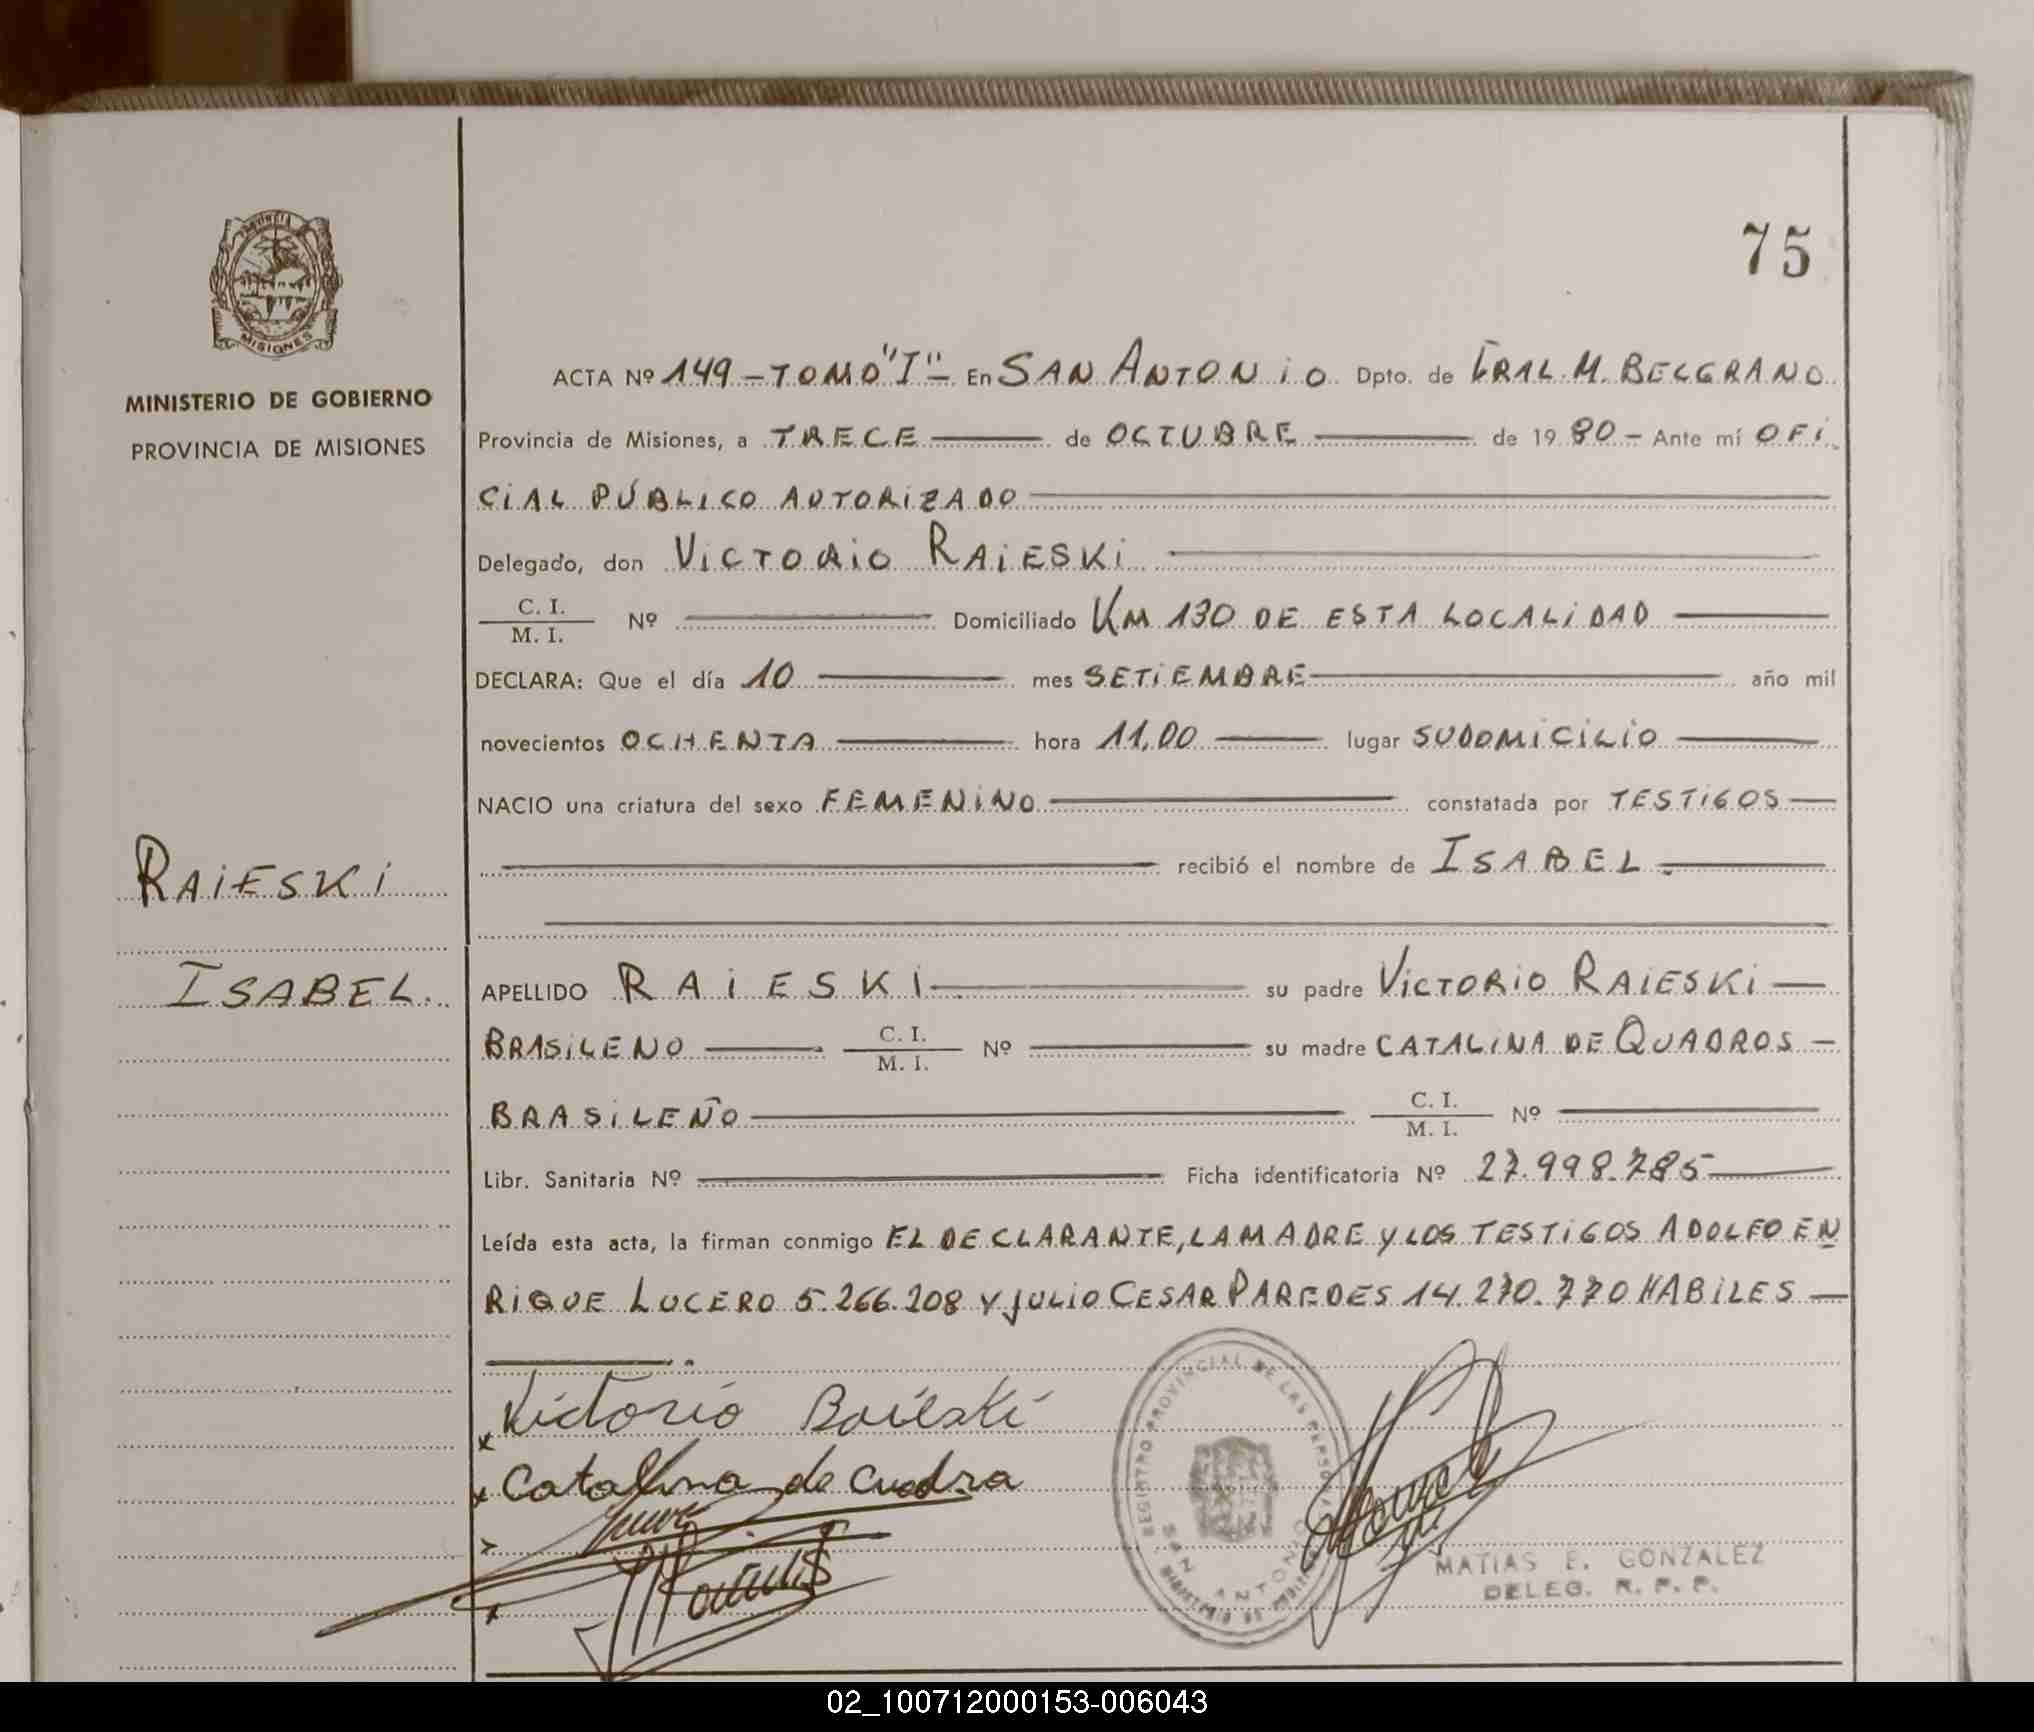 75
PROVINCIA
MISIONES
MINISTERIO DE GOBIERNO
PROVINCIA DE MISIONES
ACTA Nº 149-TOMO "I"- En SAN ANTONiO Dpto. de GRAL. M. BELGRANO
Provincia de Misiones, a TRECE de OCTUBRE de 1980- Ante mí OFi
CiAL PÚBLICO AUTORiZADO
Delegado, don ViCTORiO RAiESKi
C. I.
M. I. Nº Domiciliado KM 130 DE ESTA LOCALiDAD
DECLARA: Que el día 10 mes SETiEMBRE año mil
novecientos OCHENTA hora 11,00 lugar SU DOMiCiLiO
NACIO una criatura del sexo FEMENiNO constatada por TESTiGOS
recibió el nombre de ISABEL.
RAiESKi
ISABEL.
APELLIDO RAiESKi su padre ViCTORiO RAiESKi
BRASiLENO C. I.
M. I. Nº su madre CATALiNA DE QUADROS
BRASiLEÑO C. I.
M. I. Nº
Libr. Sanitaria Nº Ficha identificatoria Nº 27.998.785
Leída esta acta, la firman conmigo EL DECLARANTE, LA MADRE Y LOS TESTiGOS ADOLFO EN
RiQUE LUCERO 5.266.208 Y JULiO CESAR PAREDES 14.270.770 HABiLES
Victorio Raieski
Catalina de Cuadra
REGISTRO PROVINCIAL DE LAS PERSONAS
SAN ANTONIO
MATIAS E. GONZALEZ
DELEG. R. P. P.
02_100712000153-006043